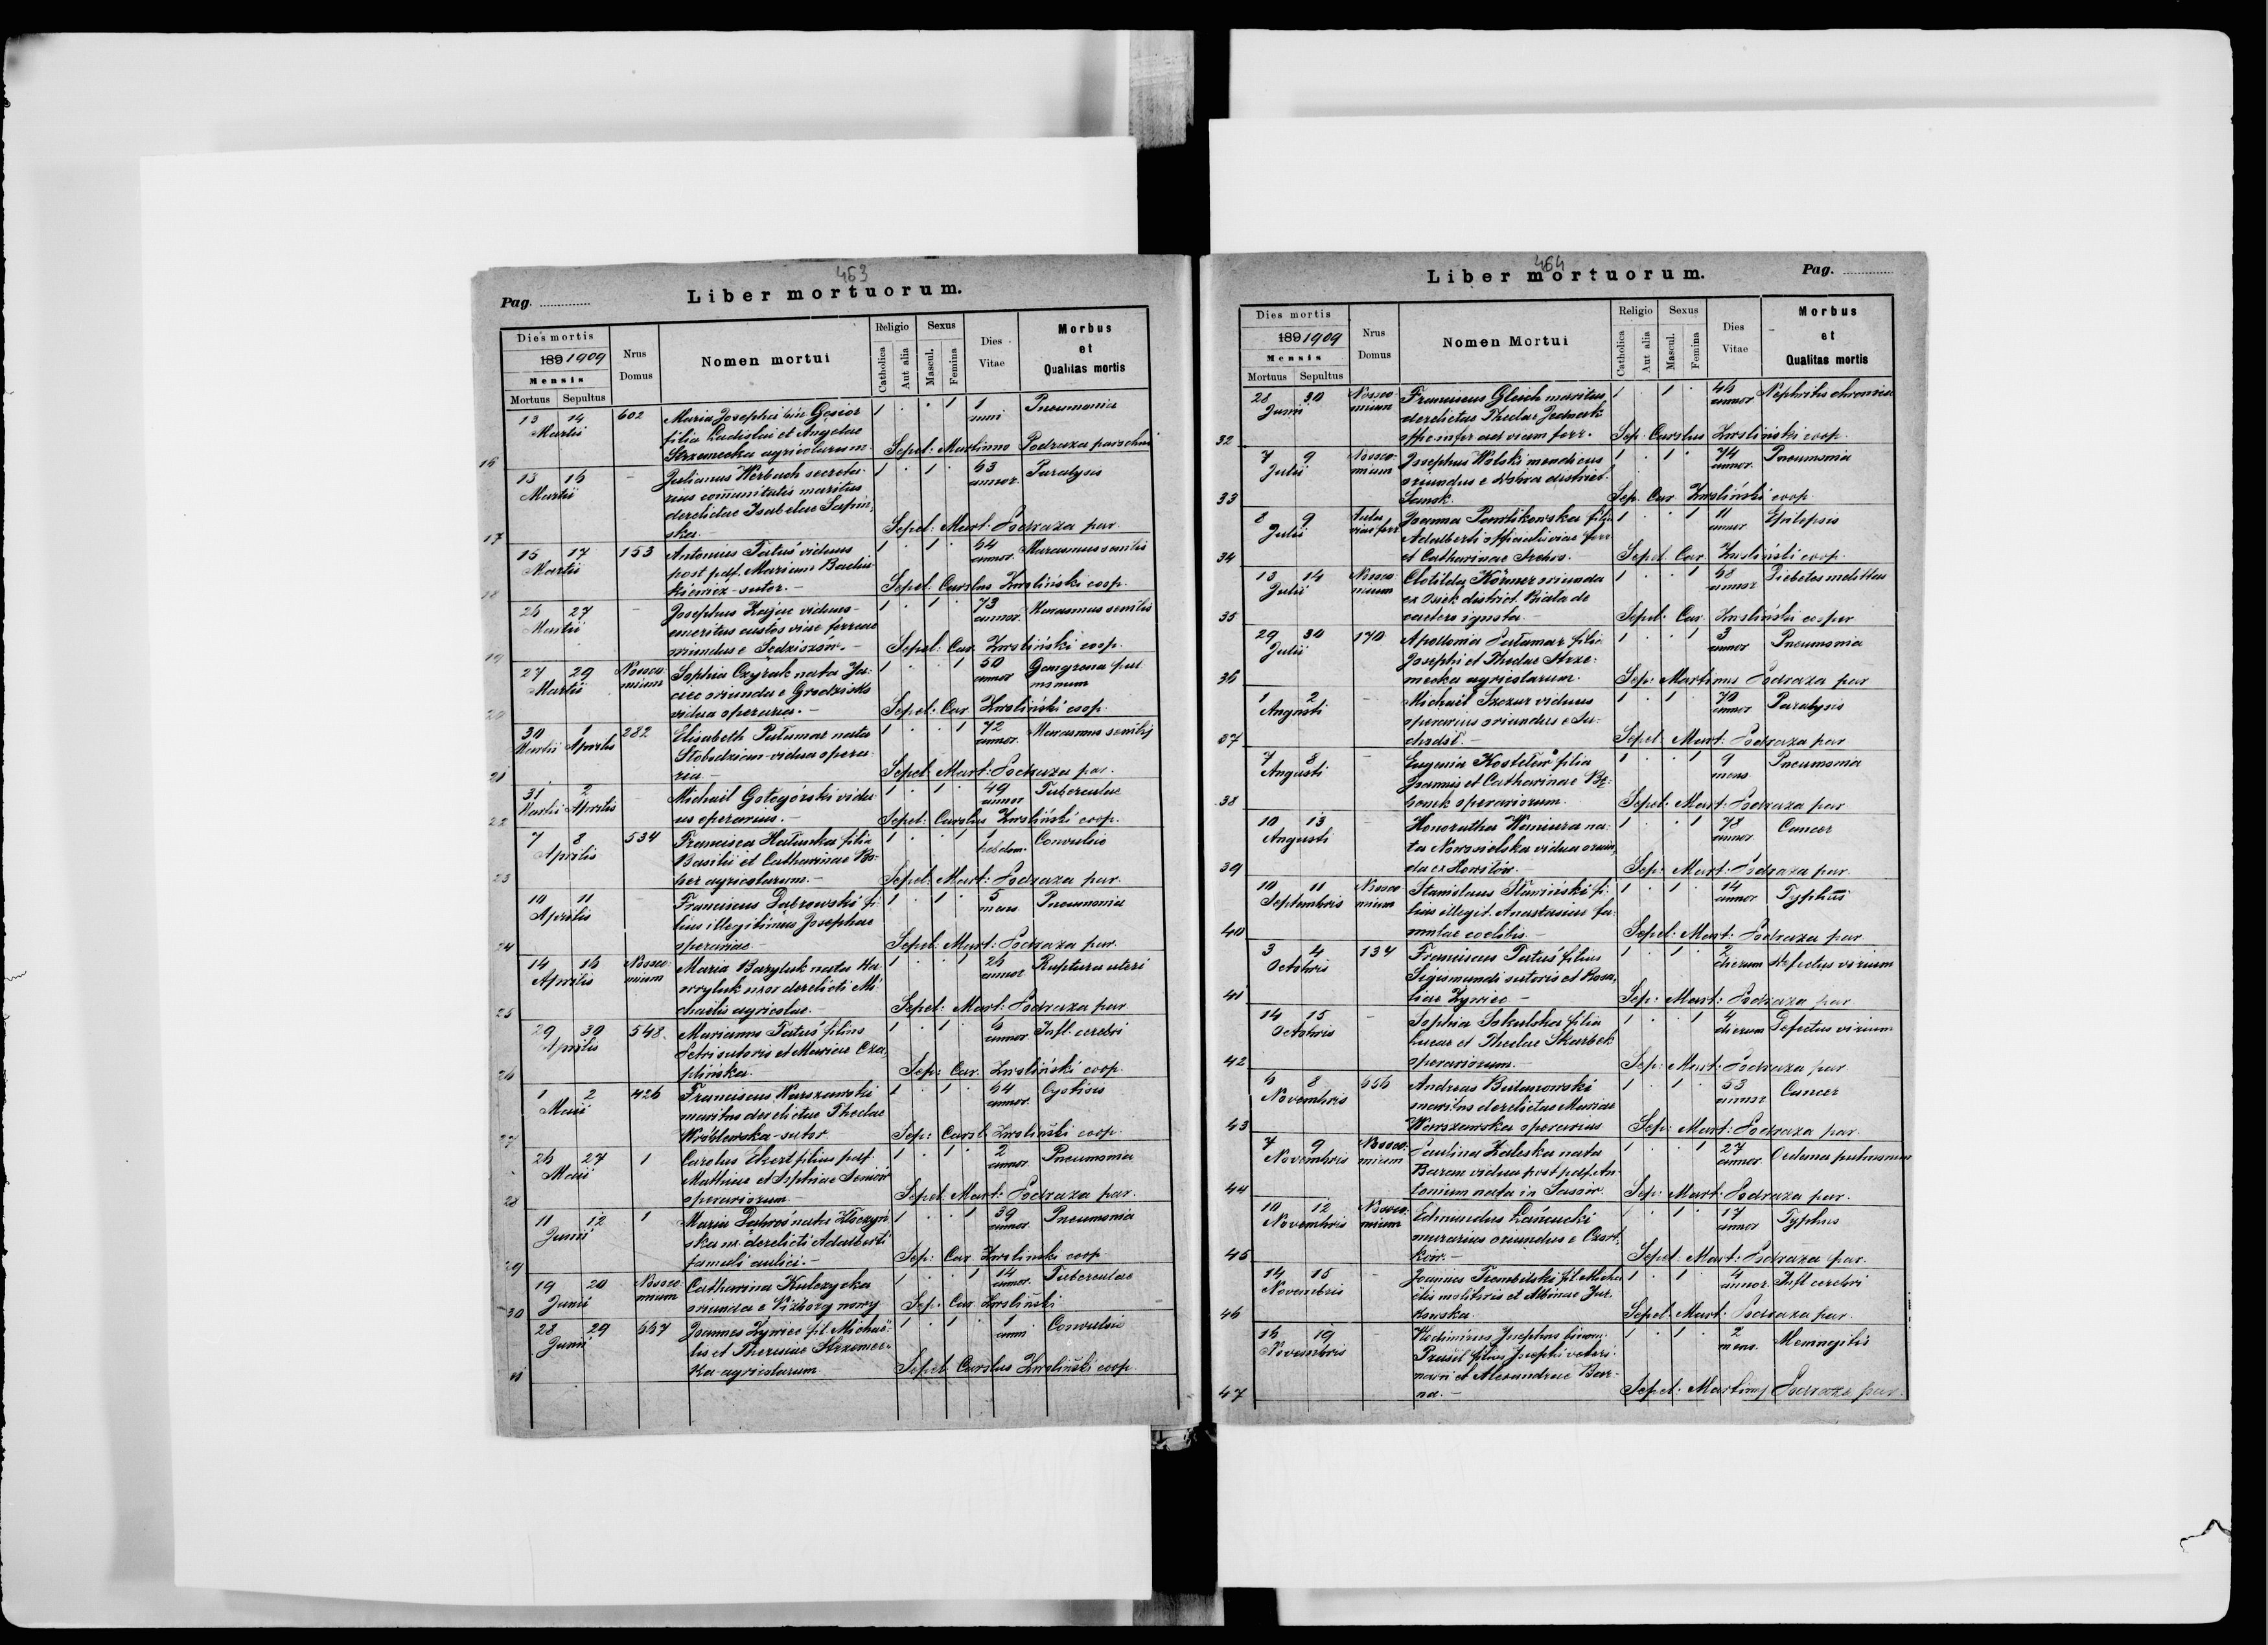 463
Pag.
Liber mortuorum.
Dies mortis
189 1909
Mensis
Mortuus Sepultus
Nrus Domus
Nomen mortui
Religio
Catholica
Aut alia
Sexus
Mascul.
Femina
Dies Vitae
Morbus et Qualitas mortis
16
13 14 602 Maria Josepha bin Gąsior 1 . . 1 1 Pneumonia
Martii filia Ladislai et Angelae anni
Strzemecka agricolarum Sepel: Martinus Podraza parochus
17
13 16 - Julianus Werbach secreta- 1 . 1 . 63 Paralysis
Martii rius communitatis maritus annor.
derelictae Isabelae Sapiń-
ska. Sepel: Mart: Podraza par.
18
15 17 153 Antonius Tatuś viduus 1 . 1 . 64 Marasmus senilis
Martii post pdf. Mariam annor.
- sutor. - Sepel: Carolus Zwoliński coop.
19
26 27 - Josephus Zając viduus - 1 . 1 . 73 Marasmus senilis
Martii emeritus custos viae ferreae annor.
oriundus e Sędziszów. - Sepel: Car. Zwoliński coop.
20
27 29 Nosoco- Sophia Czyżuk nata Ja- 1 . . 1 50 Gangrena pul-
Martii mium oriunda e Grodzisko annor monum
vidua operaria. - Sepel: Car. Zwoliński coop.
21
30 1 282 Elisabeth Putamar nata 1 . . 1 72 Marasmus senilis
Martii Aprilis Słobodzian - vidua opera- annor.
ria - Sepel: Mart: Podraza par.
22
31 2 - Michael Gołogórski vidu- 1 . 1 . 49 Tuberculae
Martii Aprilis us operarius. - annor Sepel: Carolus Zwoliński coop.
23
7 8 534 Francisca Hałuszka filia 1 . . 1 1 Convulsio
Aprilis Basilii et Catharinae Bo- hebdom.
ber agricolarum. - Sepel: Mart: Podraza par.
24
10 11 Franciscus Dąbrowski fi- 1 . 1 . 5 Pneumonia
Aprilis lius illegitimus Josephae mens
operariae. - Sepel: Mart: Podraza par.
25
14 16 Nosoco- Maria Bazyluk nata Ha- 1 . . 1 26 Ruptura uteri
Aprilis mium wryluk uxor derelicti Mi- annor
chaelis agricolae. Sepel: Mart: Podraza par
26
29 30 548. Marianus Tatuś filius 1 . 1 . 6 Infl. cerebri
Aprilis Petri sutoris et Mariae Cza- annor
plińska. Sep: Car. Zwoliński coop.
27
1 2 426 Franciscus Warszawski 1 . 1 . 64 Cystisis
Maii maritus derelictae Theclae annor.
Wróblewska - sutor Sep: Carol. Zwoliński coop.
28
26 27 1 Carolus Ekert filius pdf. 1 . 1 . 2 Pneumonia
Maii Mathiae et Sophiae annor.
operariorum. Sepel. Mart: Podraza par.
29
11 12 1 Maria Dąbroś nata Kłoczyń- 1 . . 1 39 Pneumonia
Junii ska ux. derelicti Adalberti annor
famuli aulici. - Sep: Car. Zwolinski coop.
30
19 20 Nosoco- Catharina Kulczycka 1 . . 1 14 Tuberculae
Junii mium oriunda e Niżborg nowy annor. Sep: Car. Zwoliński
31
28 29 667 Joannes Żywiec fil. Michaë- 1 . 1 . 1 Convulsio
Junii lis et Theresiae Strzemec- anni
ka agricolarum. Sepel. Carolus Zwoliński coop.
464
Liber mortuorum.
Pag.
Dies mortis
189 1909
Mensis
Mortuus Sepultus
Nrus Domus
Nomen Mortui
Religio
Catholica
Aut alia
Sexus
Mascul.
Femina
Dies Vitae
Morbus et Qualitas mortis
32
28 30 Nosoco- Franciscus Gleich maritus 1 . 1 . 46 Nephritis chronica
Junii mium derelictae Theclae annor
offic. infer ad viam ferr. Sep: Carolus Zwoliński coop.
33
7 9 Nosoco- Josephus Wolski mendicus 1 . 1 . 74 Pneumonia
Julii mium oriundus e district. annor.
Sanok. Sep. Car. Zwoliński coop.
34
8 9 viae ferr Joanna Pawlikowska filia 1 . . 1 11 Epilepsis
Julii Adalberti officialis viae ferr annor
et Catharinae Sepel. Car. Zwoliński coop.
35
13 14 Nosoco- Clotilda Körner oriunda 1 . . 1 68 Diebetes melittus
Julii mium ex Osiek district. Biała de annor
caetero ignota. - Sepel. Car. Zwoliński cooper
36
29 30 170 Apollonia Putamar filia 1 . . 1 3 Pneumonia
Julii Josephi et Theclae Strze- annor
mecka agricolarum. Sep: Martinus Podraza par
37
1 2 - Michaël Szczur viduus 1 . 1 70 Paralysis
Augusti operarius oriundus e annor
Sepel: Mart: Podraza par
38
7 8 - Eugenia Kostełów filia 1 . . 1 9 Pneumonia
Augusti Joannis et Catharinae mens.
operariorum. Sepel: Mart: Podraza par
39
10 13 - Honoratha na- 1 . . 1 78 Cancer
Augusti ta Nowosielska vidua oriun- annor.
da ex Sep: Mart: Podraza par.
40
10 11 Nosoco- Stanislaus Sławiński fi- 1 . 1 . 14 Typhus
Septembris mium lius illegit. Anastasiae fa- annor
mulae coelibis. - Sepel: Mart: Podraza par.
41
3 4 134 Franciscus Tatuś filius 1 . 1 . 2 Defectus virium
Octobris Sigismundi sutoris et Rosa- dierum
liae Żywiec - Sep: Mart: Podraza par
42
14 15 - Sophia Sokulska filia 1 . . 1 4 Defectus virium
Octobris Lucae et Theclae Skarbek dierum
operariorum. Sep: Mart: Podraza par.
43
6 8 656 Andreas Butanowski 1 . 1 . 53 Cancer
Novembris maritus derelictae Mariae annor
Warszawska operarius Sep: Mart: Podraza par.
44
7 9 Nosoco- Paulina Zaleska nata 1 . . 1 27 Oedema pulmonum
Novembris mium Baran vidua post pdf. An- annor
tonium nata in Sasów. Sep: Mart: Podraza par.
45
10 12 Nosoco- Edmundus Łańcucki 1 . 1 . 17 Typhus
Novembris mium murarius oriundus e Czort- annor
ków. - Sepel. Mart: Podraza par.
46
14 15 Joannes Trembilski fil. Micha- 1 . 1 4 Infl cerebri
Novembris ëlis molitoris et Albinae Jur- annor.
kowska. Sepel: Mart: Podraza par.
47
16 19 - Vladimirus Josephus binom: 1 . 1 . 2 Meningitis
Novembris filius Josephi veteri- mens.
narii et Alexandrae Bar-
na. - Sepel: Martinus Podraza par.